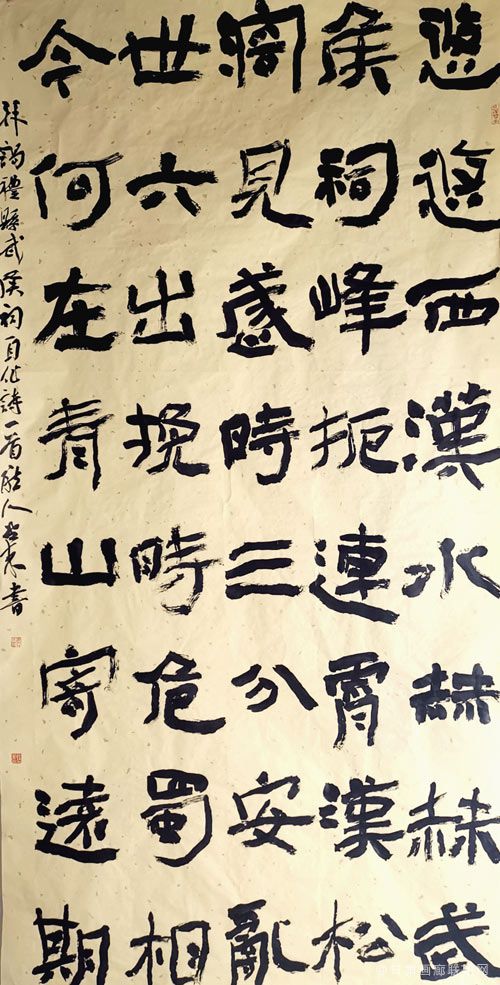 悠悠西漢水赫赫武
矦祠峰扼連霄漢松
窩見盛時三分安亂
世六出挽時危蜀相
今何在青山寄遠期
拜謁禮縣武侯祠自作詩一首 人 書